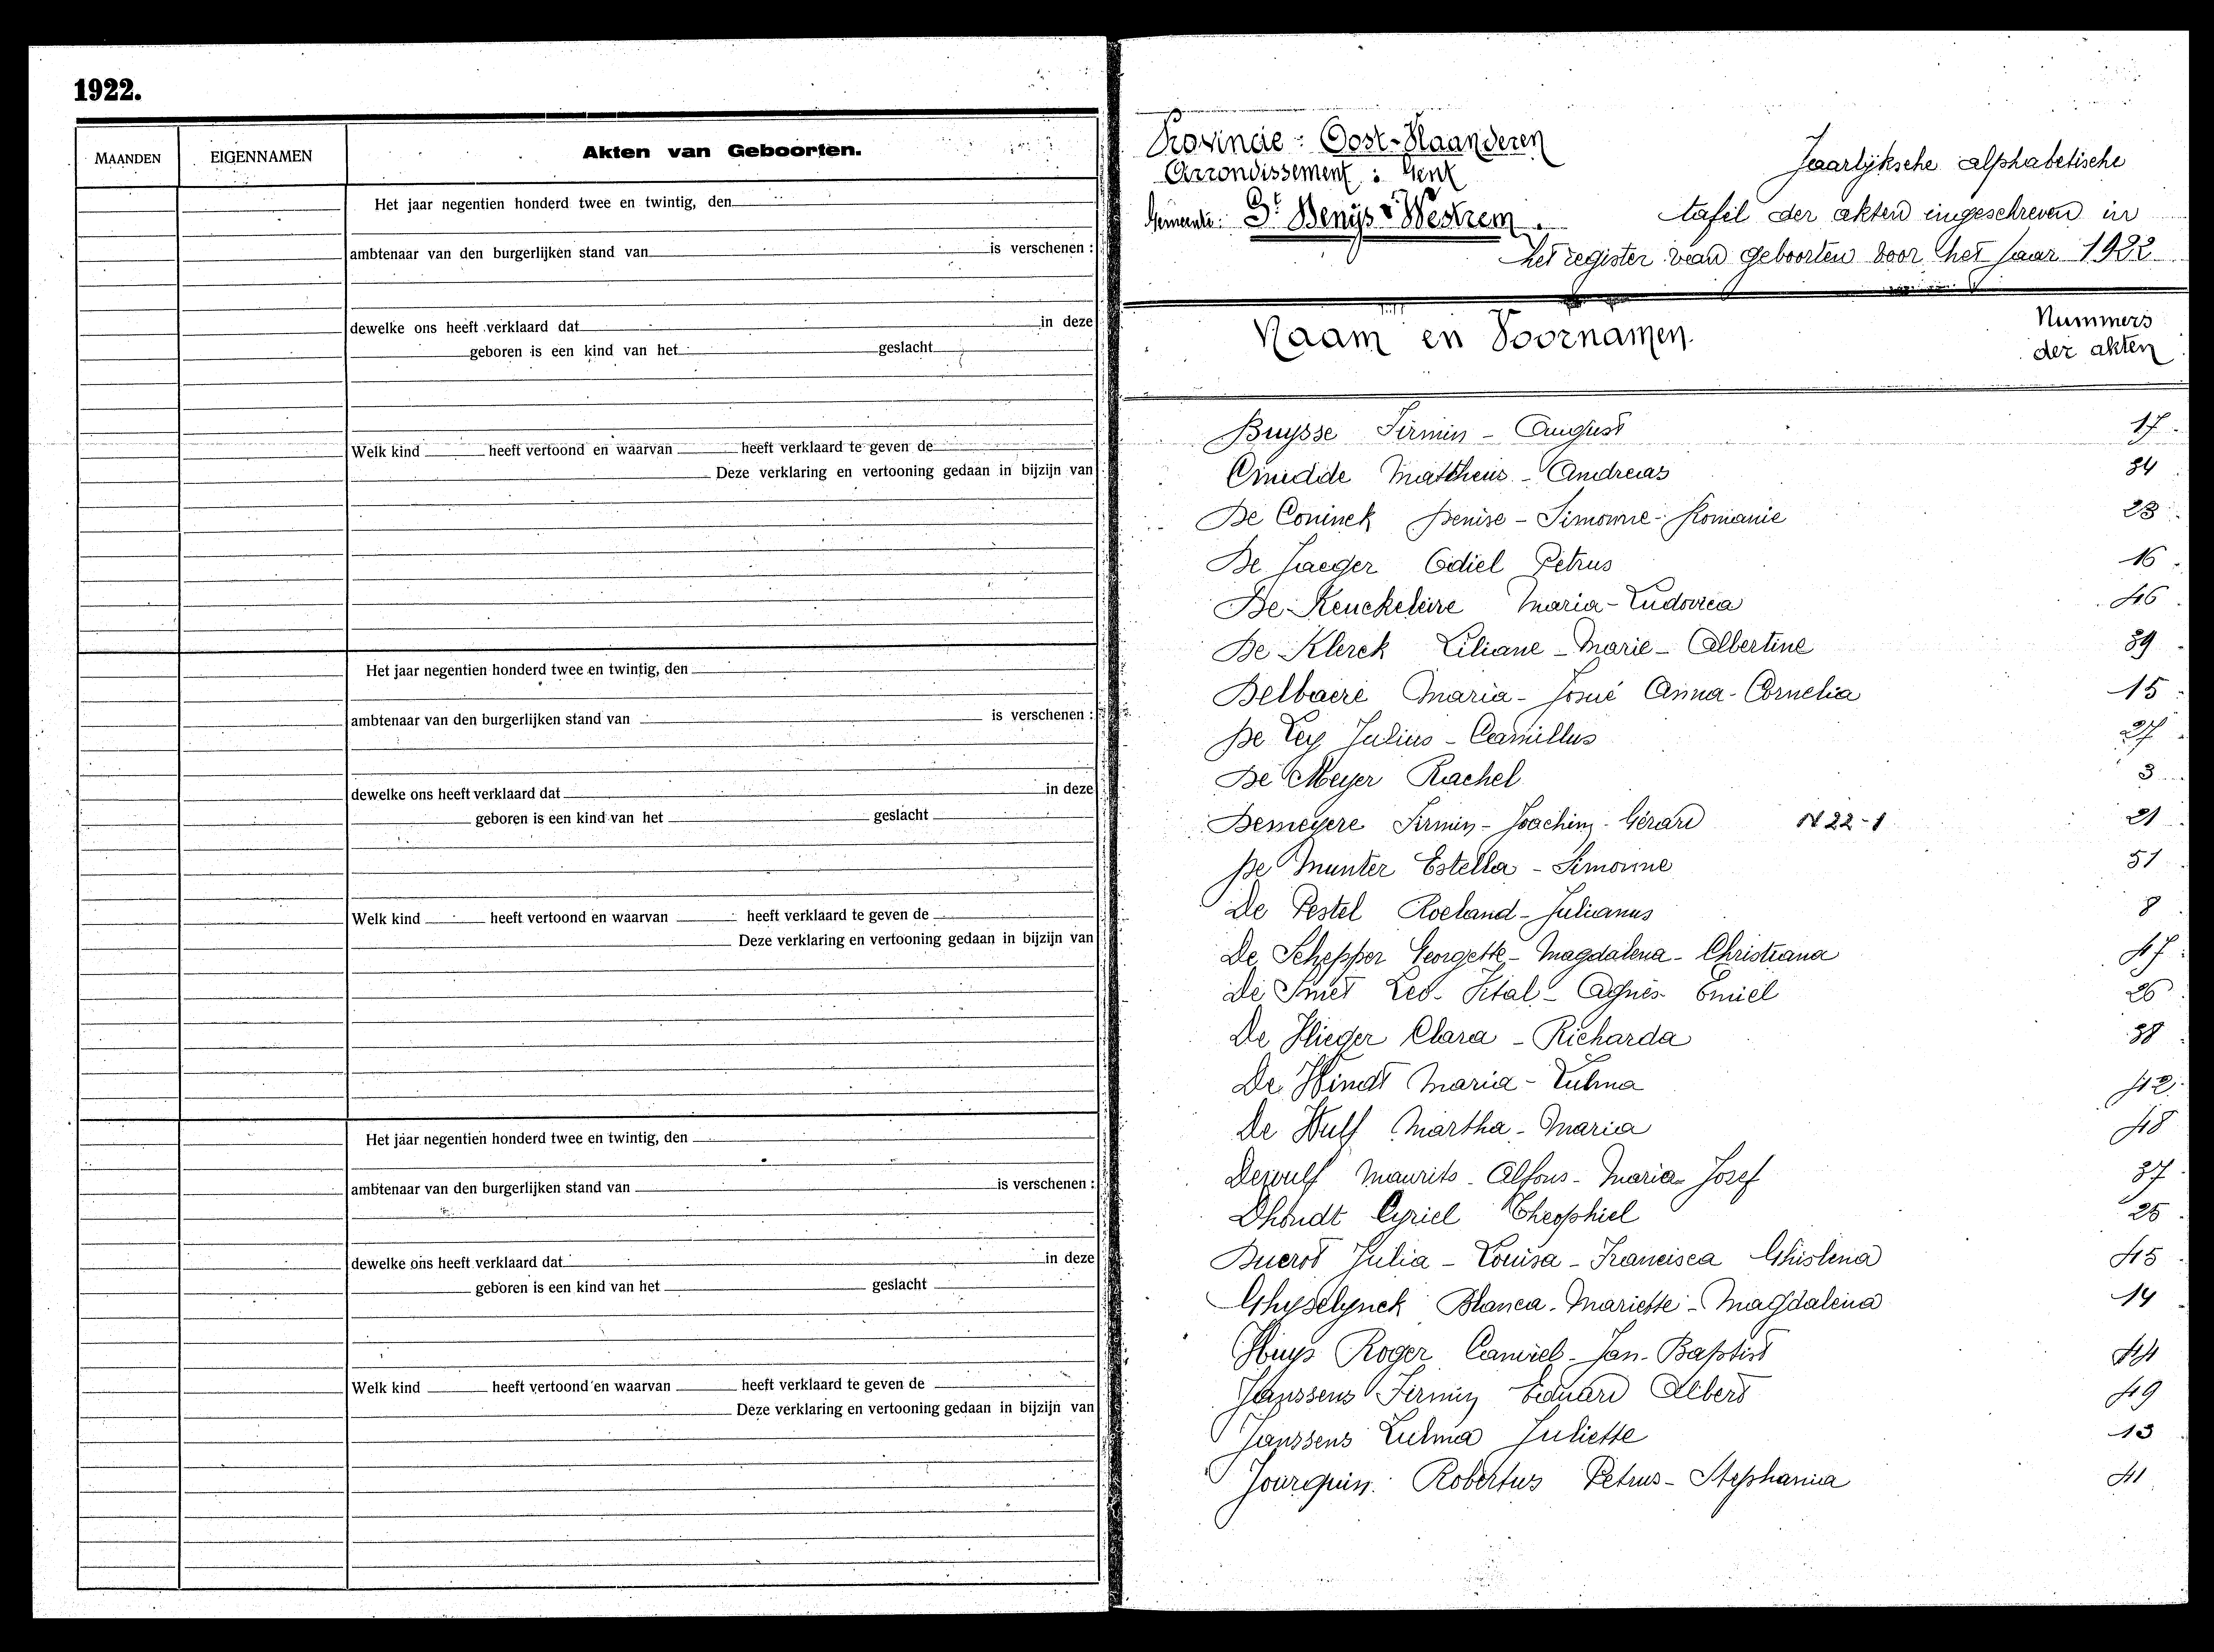 1922.
MAANDEN EIGENNAMEN Akten van Geboorten.
Het jaar negentien honderd twee en twintig, den
ambtenaar van den burgerlijken stand van is verschenen :
dewelke ons heeft verklaard dat in deze
geboren is een kind van het geslacht
Welk kind heeft vertoond en waarvan heeft verklaard te geven de
Deze verklaring en vertooning gedaan in bijzijn van
Het jaar negentien honderd twee en twintig, den
ambtenaar van den burgerlijken stand van is verschenen :
dewelke ons heeft verklaard dat in deze
geboren is een kind van het geslacht
Welk kind heeft vertoond en waarvan heeft verklaard te geven de
Deze verklaring en vertooning gedaan in bijzijn van
Het jaar negentien honderd twee en twintig, den
ambtenaar van den burgerlijken stand van is verschenen :
dewelke ons heeft verklaard dat in deze
geboren is een kind van het geslacht
Welk kind heeft vertoond en waarvan heeft verklaard te geven de
Deze verklaring en vertooning gedaan in bijzijn van
Provincie : Oost-Vlaanderen
Arrondissement : Gent
Gemeente : St Denys Westrem.
Jaarlijksche alphabetische
tafel der akten ingeschreven in
het register van geboorten voor het jaar 1922
Naam en Voornamen. Nummers
der akten
Buysse Firmin - August 17
Mattheus - Andreas 34
De Coninck Denise - Simonne - Romanie 23
De Jaeger Odiel Petrus 16
De Keuckeleire Maria - Ludovica 46
De Klerck Liliane - Marie - Albertine 39
Delbaere Maria - Josué Anna - Cornelia 15
De Ley Julius - Camillus 27
De Meyer Rachel 3
Demeyere Firmin - Joachim - Gérard N 22-1 21
De Munter Estella - Simonne 51
De Pestel Roeland - Julianus 8
De Schepper Georgette - Magdalena - Christiana 47
De Smet Leo - Vital - Agnès - Emiel 26
De Vlieger Clara - Richarda 38
De Windt Maria - Zulma 42
De Wulf Martha - Maria 48
Dewulf Maurits - Alfons - Maria - Josef 37
Dhondt Cyriel Theophiel 25
Buerot Julia - Louisa - Francisca Ghislena 45
Ghyselynck Blanca - Mariette - Magdalena 14
Huys Roger Camiel - Jan - Baptist 44
Janssens Firmin Eduard Albert 49
Janssens Zulma Juliette 13
Jourquin Robertus Petrus - Stephania 41